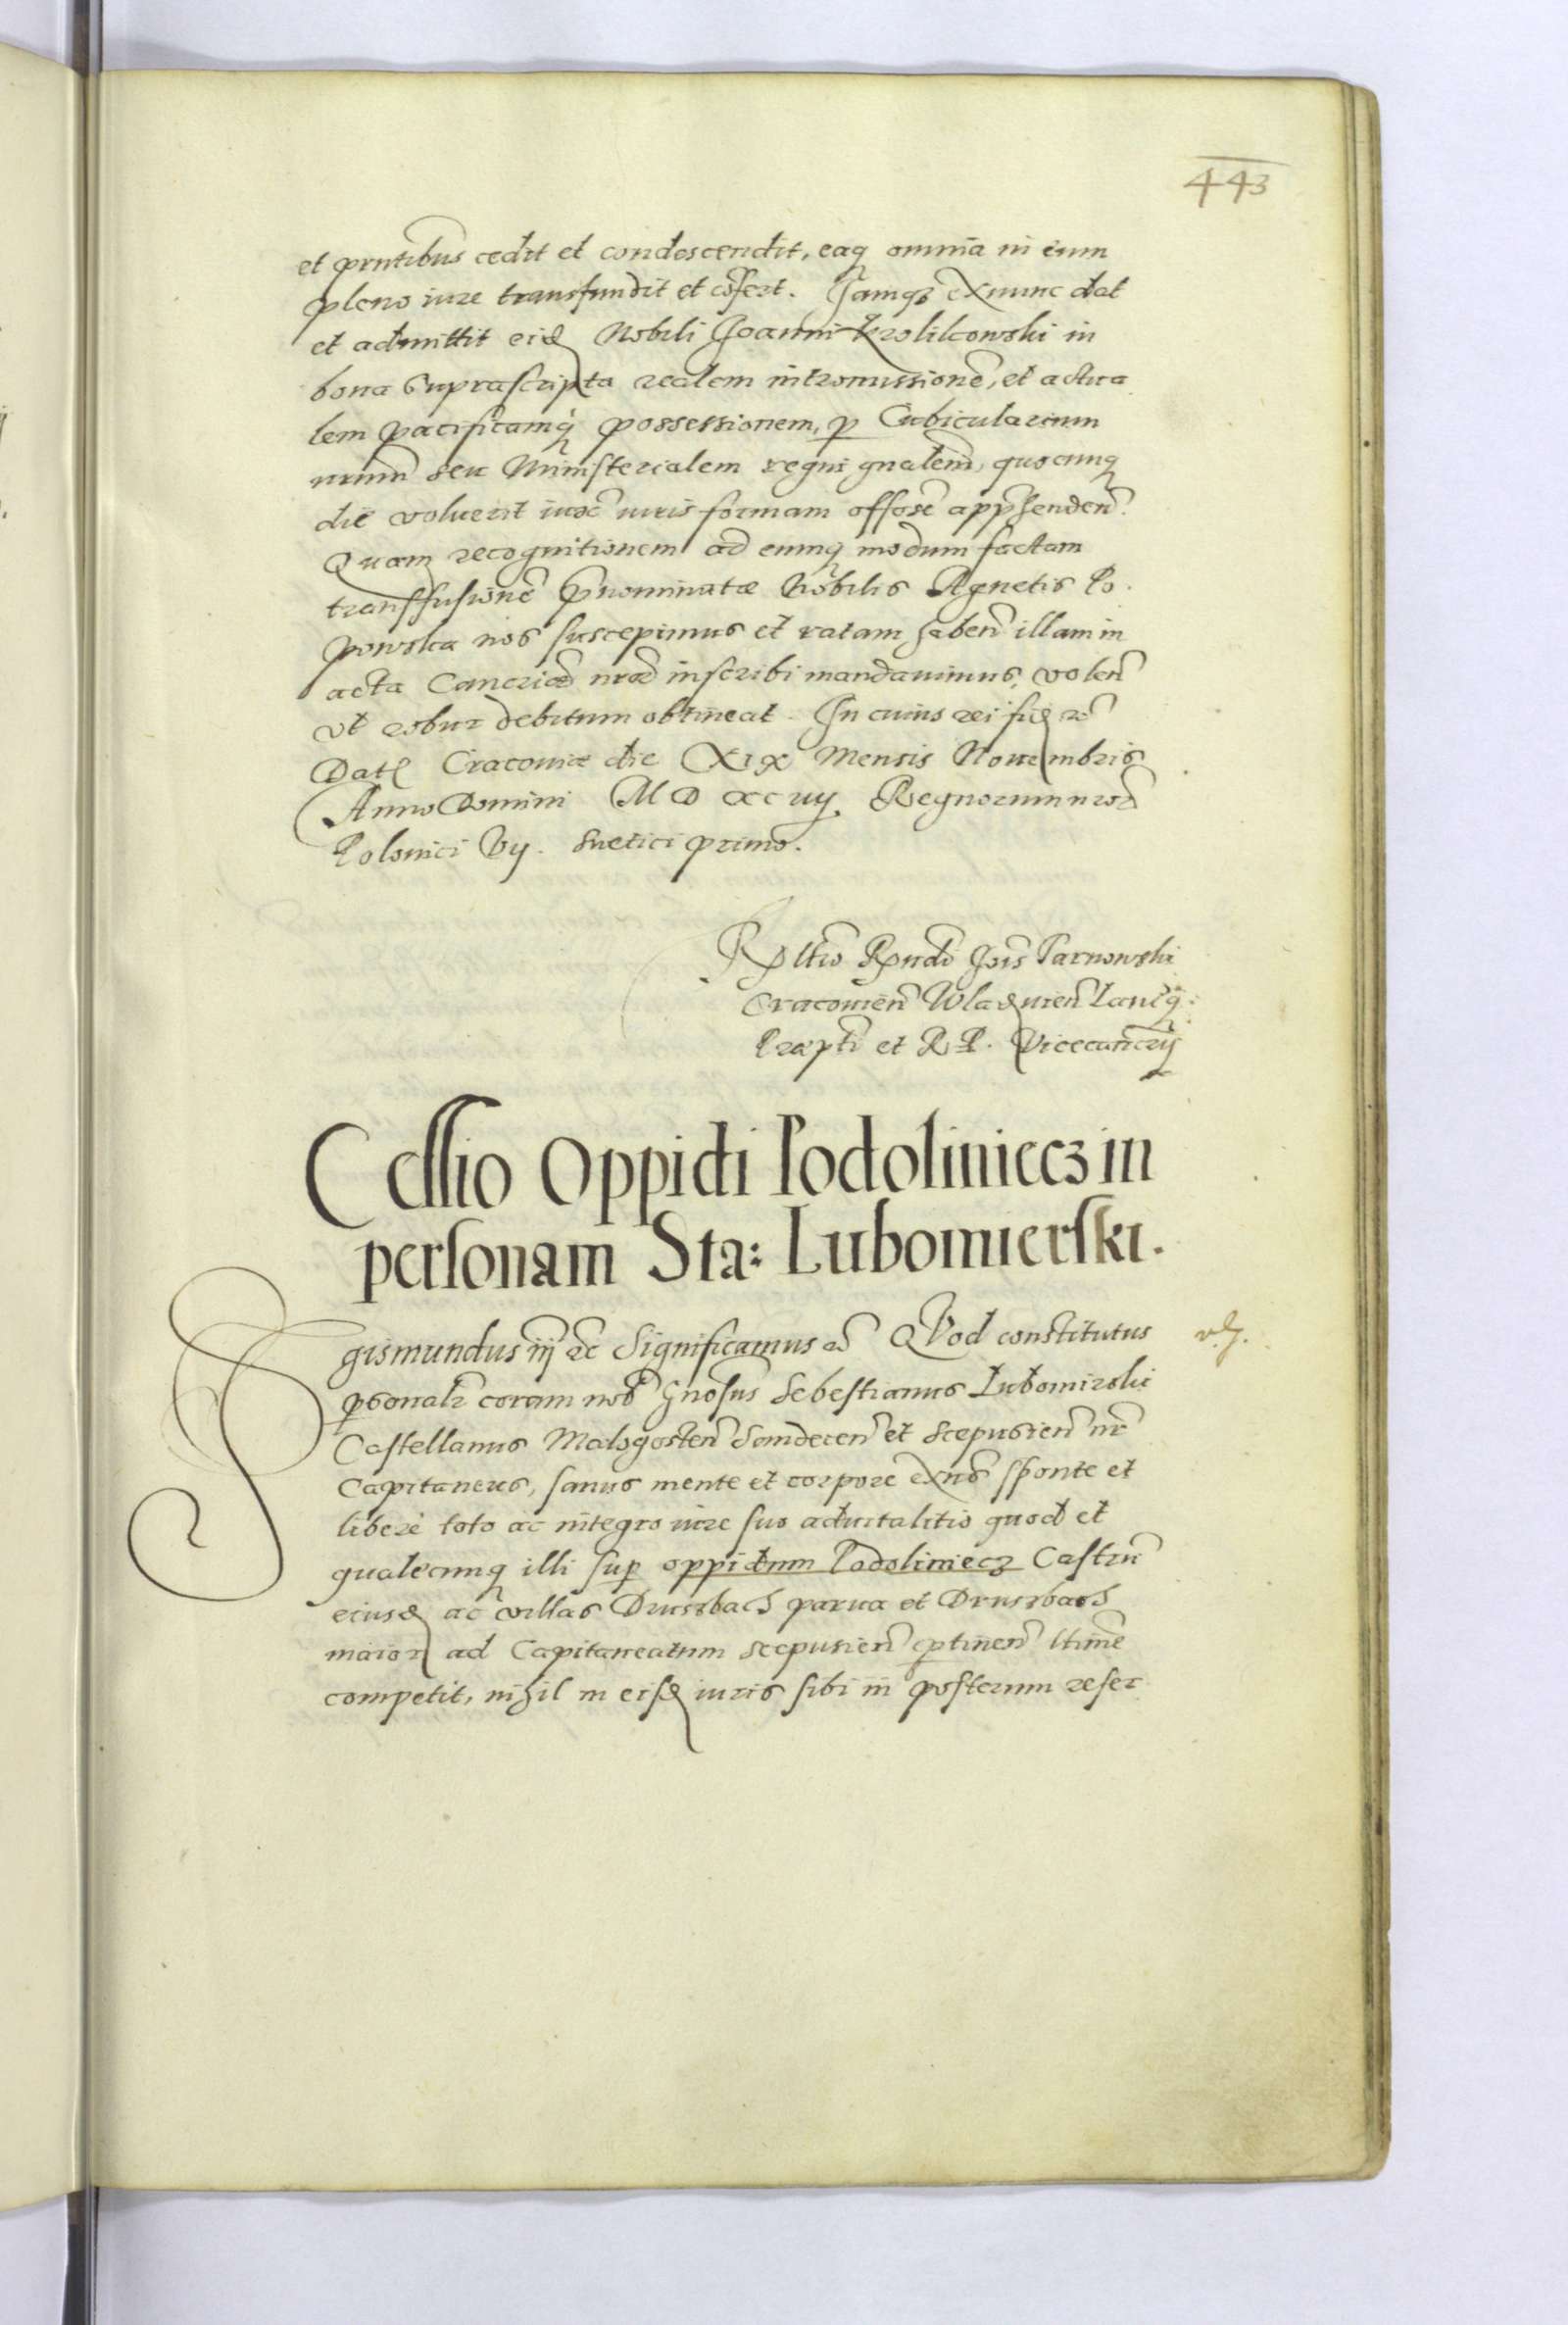 443
et prntibus cedit et condescendit, eaq omnia in eum
pleno iure transfundit et cōfert. Jamqꝫ exnunc dat
et admittit eid Nobili Joanni Krolikowski in
bona suprascripta realem intromissionē, et actua
lem pacificamq possessionem, p Cubicularium
nrum seu Ministerialem regni gnalem, quocunq
die voluerit iuxᵃ iuris formam offose apphenden.
Quam recognitionem ad eumq modum factam
transffusionē pnominatæ Nobilis Agnetis Po.
powska nos suscepimus et ratam haben illam in
acta Cancriæ nræ inscribi mandauimus, volen
vt robur debitum obtineat. In cuius rei fid rc
Dat Cracouiæ die XIX Mensis Nouembris
Anno Domini M D xc iiij. Regnorum nror
Polonici Vij. Suetici primo.
Rltio Rndi Jois Tarnowski
Cracouien Wladnien Lanciq:
Præpti et R. P. Vicecancrij
Cessio Oppidi Podoliniecz in
personam Sta: Lubomierski.
Sigismundus iij rc Significamus rc Quod constitutus
psonalr coram nob Gnosus Sebestianus Lubomirski
Castellanus Malogosten Sandecen et Scepusien nr
Capitaneus, sanus mente et corpore exns sponte et
liberè toto ac integro iure suo aduitalitio quod et
qualecunq illi sup oppidum Podoliniecz Castrū
eiusd ac villas Druszbach parua et Druszbach
maior ad Capitaneatum scepusien ptinen ltime
competit, nihil in eisd iuris sibi in posterum reser